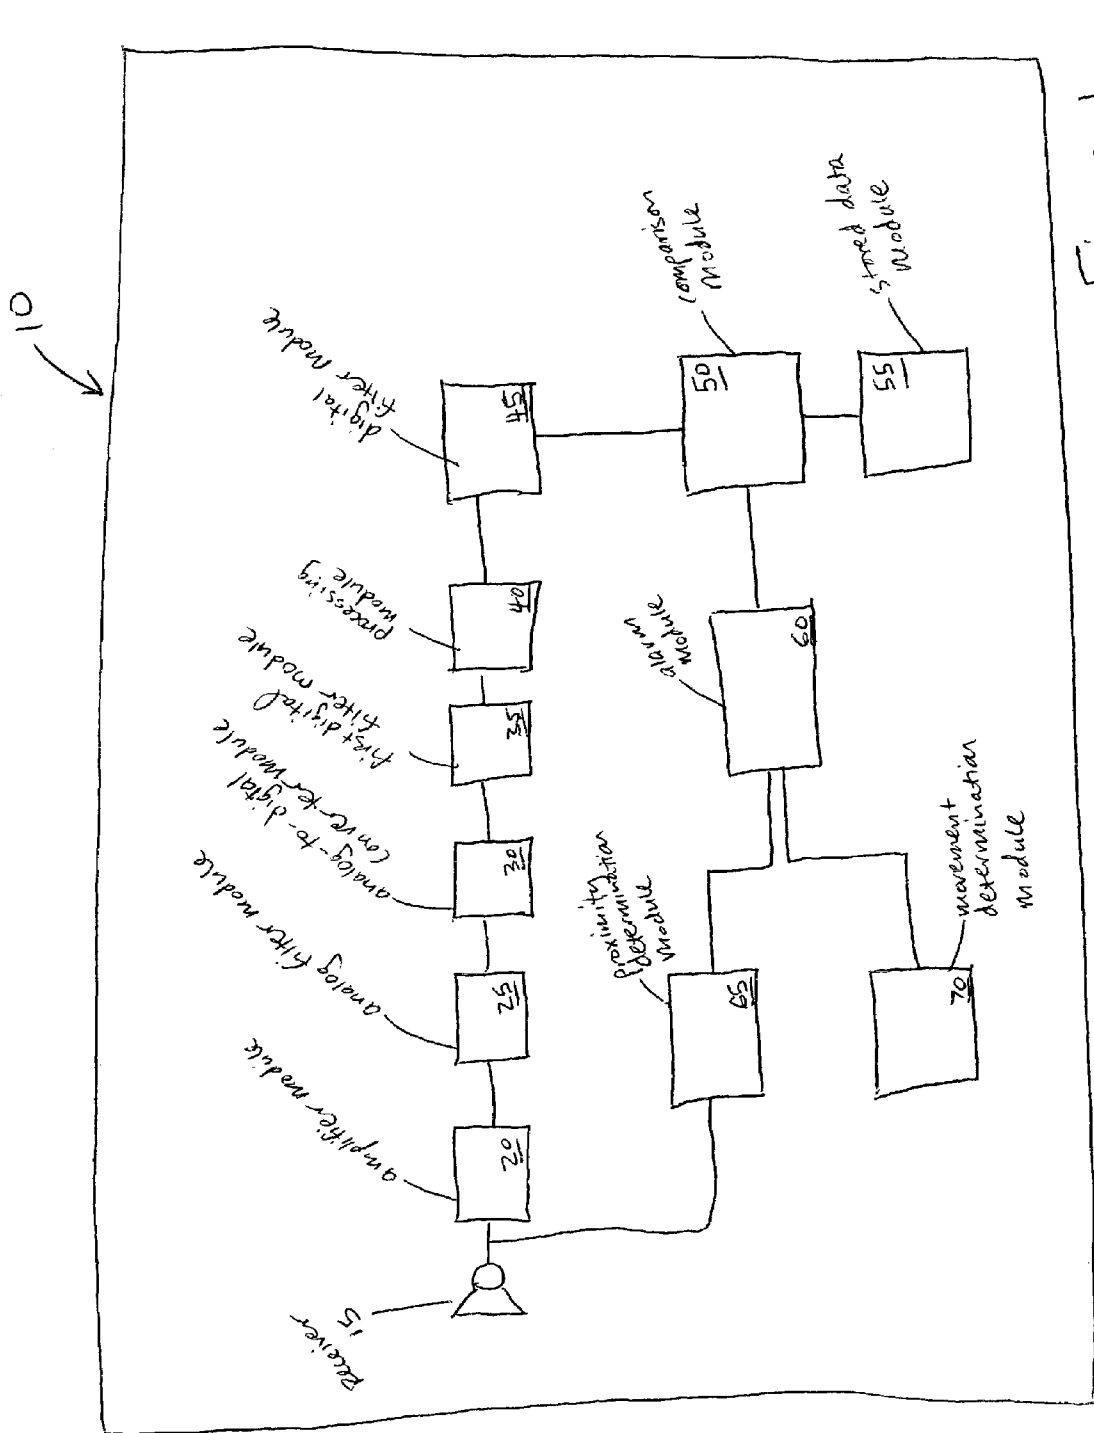 10
receiver
15
amplifier module
20
analog filter module
25
analog-to-digital
converter module
30
first digital
filter module
35
processing
module
40
digital
filter module
45
comparison
module
50
stored data
module
55
alarm
module
60
proximity
determination
module
65
movement
determination
module
70